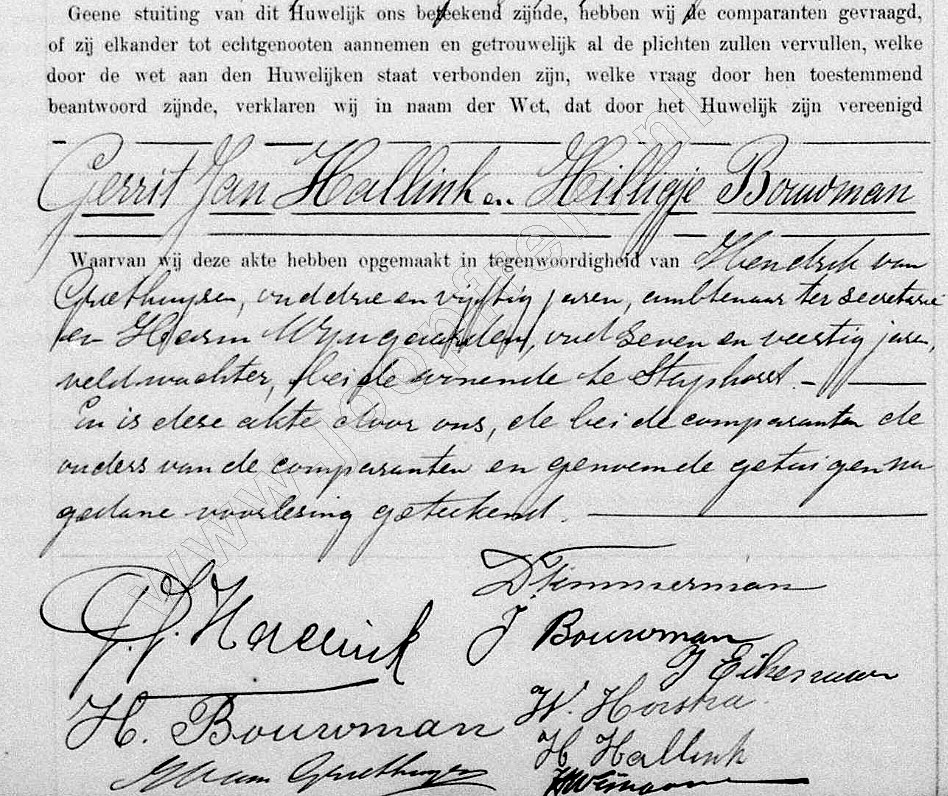 Geene stuiting van dit Huwelijk ons beteekend zijnde, hebben wij de comparanten gevraagd,
of zij elkander tot echtgenooten aannemen en getrouwelijk al de plichten zullen vervullen, welke
door de wet aan den Huwelijken staat verbonden zijn, welke vraag door hen toestemmend
beantwoord zijnde, verklaren wij in naam der Wet, dat door het Huwelijk zijn vereenigd
Gerrit Jan Hallink en Hilligje Bouwman
Waarvan wij deze akte hebben opgemaakt in tegenwoordigheid van Hendrik van
Griethuysen, oud drie en vijftig jaren, ambtenaar ter secretarie
en Harm Wyngaarden, oud zeven en veertig jaren,
veldwachter, beide wonende te Staphorst.
En is deze akte door ons, de beide comparanten de
ouders van de comparanten en genoemde getuigen na
gedane voorlezing geteekend.
D Timmerman
G. J. Hallink
J Bouwman
J Eikenaar
H. Bouwman
W. Horstra
H Hallink
H van Griethuysen